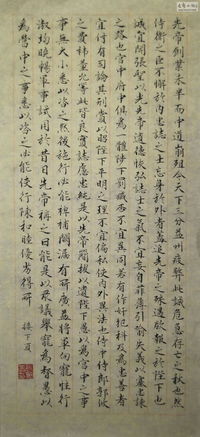 先帝創業未半而中道崩殂今天下三分益州疲弊此誠危急存亡之秋也然
侍衛之臣不懈於內忠志之士忘身於外者蓋追先帝之殊遇欲報之於陛下
誠宜開張聖以光先帝遺德恢弘志士之氣不宜妄自菲薄引喻失義以塞忠諫
之路也宮中府中俱為一體陟罰臧否不宜異同若有作奸犯科及為忠善者
宜付有司論其刑賞以昭陛下平明之理不宜偏私使內外異法也侍中侍郎郭攸
之費禕董允等此皆良實志慮忠純是以先帝簡拔以遺陛下愚以為宮中之事
事無大小悉以咨之然後施行必能裨補闕漏有所廣益將軍向寵性行
淑均曉暢軍事試用於昔日先帝稱之曰能是以眾議舉寵為督愚以
為營中之事悉以咨之必能使行陣和睦優劣得所 接下頁